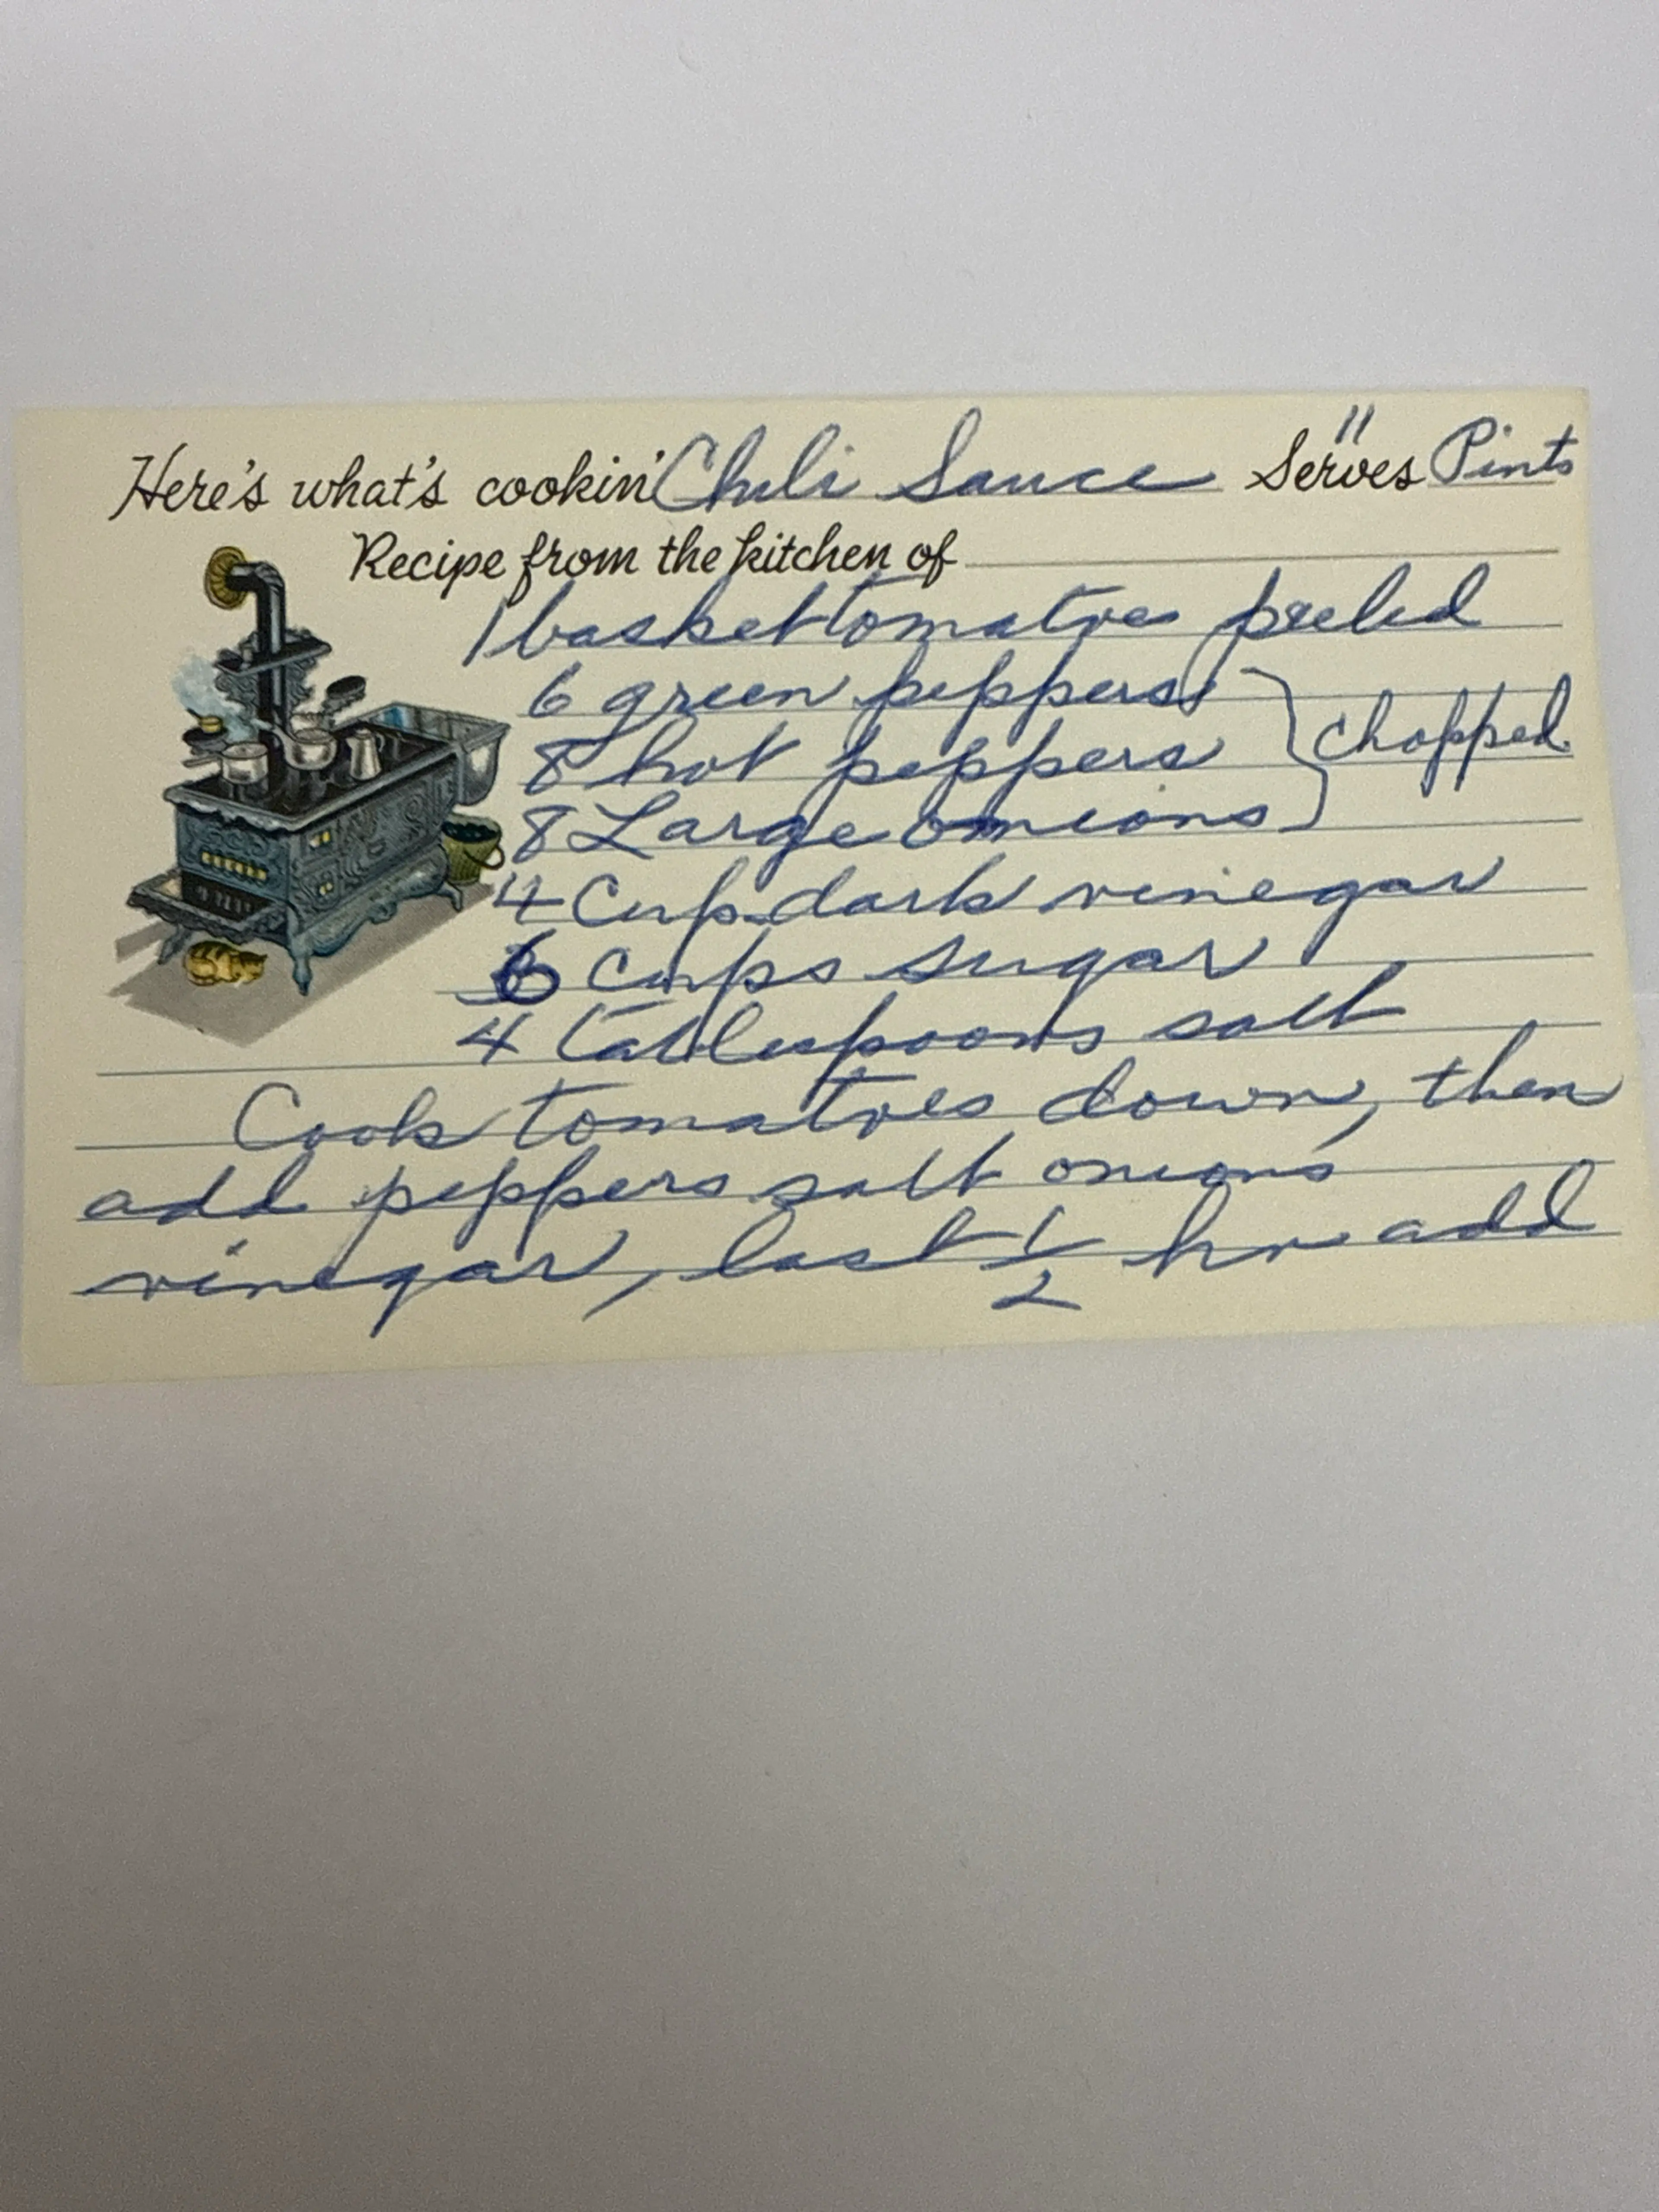 Here's what's cookin' Chili Sauce Serves 11 Pints
Recipe from the kitchen of
1 basket tomatoes peeled
6 green peppers
8 hot peppers } chopped.
8 Large onions
4 Cup dark vinegar
6 cups sugar
4 tablespoons salt
Cook tomatoes down, then
add peppers salt onions
vinegar, last 1/2 hr add